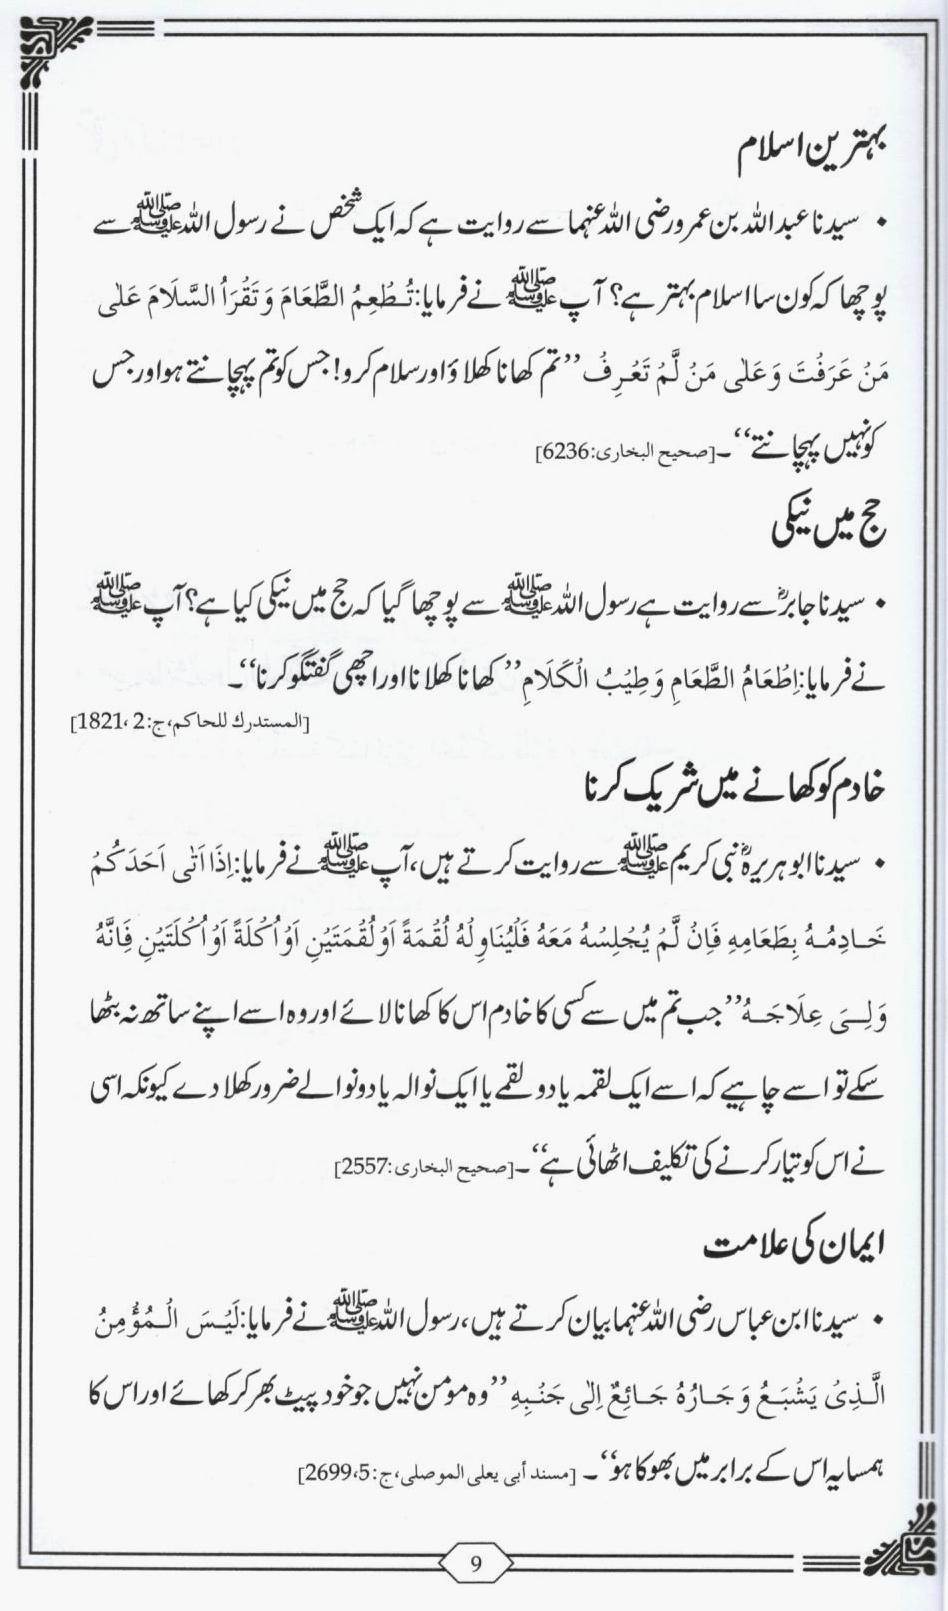 بہترین اسلام
• سیدنا عبداللہ بن عمرو رضی اللہ عنہما سے روایت ہے کہ ایک شخص نے رسول اللہ ﷺ سے
پوچھا کہ کون سا اسلام بہتر ہے؟ آپ ﷺ نے فرمایا: تُطْعِمُ الطَّعَامَ وَ تَقْرَاُ السَّلَامَ عَلٰی
مَنْ عَرَفْتَ وَ عَلٰی مَنْ لَّمْ تَعْرِفْ ’’تم کھانا کھلاؤ اور سلام کرو! جس کو تم پہچانتے ہو اور جس
کو نہیں پہچانتے‘‘۔ [صحیح البخاری: 6236]
حج میں نیکی
• سیدنا جابرؓ سے روایت ہے رسول اللہ ﷺ سے پوچھا گیا کہ حج میں نیکی کیا ہے؟ آپ ﷺ
نے فرمایا: اِطْعَامُ الطَّعَامِ وَ طِیْبُ الْکَلَامِ ’’کھانا کھلانا اور اچھی گفتگو کرنا‘‘۔
[المستدرك للحاكم، ج: 2، 1821]
خادم کو کھانے میں شریک کرنا
• سیدنا ابو ہریرہؓ نبی کریم ﷺ سے روایت کرتے ہیں، آپ ﷺ نے فرمایا: اِذَا اَتٰی اَحَدَکُمْ
خَادِمُہُ بِطَعَامِهِ فَاِنْ لَّمْ یُجْلِسْہُ مَعَہُ فَلْیُنَاوِلْہُ لُقْمَةً اَوْ لُقْمَتَیْنِ اَوْ اُکْلَةً اَوْ اُکْلَتَیْنِ فَاِنَّهُ
وَلِیَ عِلَاجَہُ ’’جب تم میں سے کسی کا خادم اس کا کھانا لائے اور وہ اسے اپنے ساتھ نہ بٹھا
سکے تو اسے چاہیے کہ اسے ایک لقمہ یا دو لقمے یا ایک نوالہ یا دو نوالے ضرور کھلا دے کیونکہ اسی
نے اس کو تیار کرنے کی تکلیف اٹھائی ہے‘‘۔ [صحیح البخاری: 2557]
ایمان کی علامت
• سیدنا ابن عباس رضی اللہ عنہما بیان کرتے ہیں، رسول اللہ ﷺ نے فرمایا: لَیْسَ الْمُؤْمِنُ
الَّذِیْ یَشْبَعُ وَ جَارُہُ جَائِعٌ اِلٰی جَنْبِهِ ’’وہ مومن نہیں جو خود پیٹ بھر کر کھائے اور اس کا
ہمسایہ اس کے برابر میں بھوکا ہو‘‘۔ [مسند أبی یعلی الموصلی، ج: 5، 2699]
9